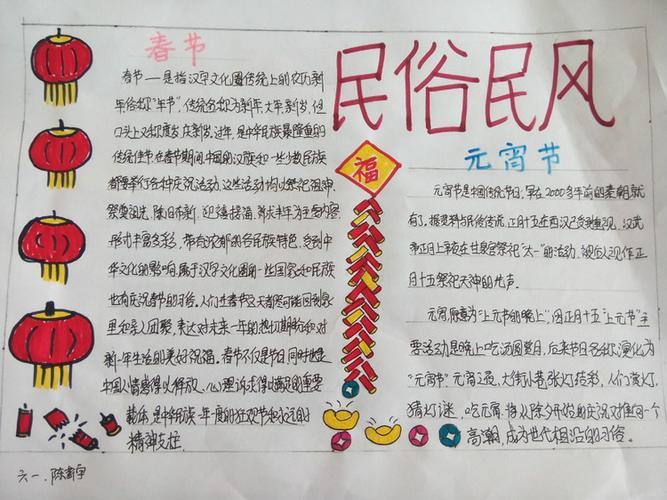 民俗民风
春节
春节——是指汉字文化圈传统上的农历新
年俗称"年节",传统名称为新年、大年、新岁,但
口头上又称度岁、庆新岁、过年,是中华民族最隆重的
传统佳节在春节期间中国的汉族和一些少数民族
都要举行各种庆祝活动。这些活动均以祭祀祖神、
祭奠祖先、除旧布新、迎禧接福、祈求丰年为主要内容,
形式丰富多彩,带有浓郁的各民族特色。受到中
华文化的影响,属于汉字文化圈的一些国家和民族
也有庆祝春节的习俗。人们在春节这天都尽可能回到家
里和亲人团聚,表达对未来一年的热切期盼和对
新一年生活的美好祝福。春节不仅是节日,同时也是
中国人情感得以释放、心理诉求得以满足的重要
载体,是中华民族一年一度的狂欢节和永远的
精神支柱。
福
元宵节
元宵节是中国传统节日,早在2000多年前的秦朝就
有了。据资料与民俗传说,正月十五在西汉已受到重视,汉武
帝正月上辛夜在甘泉宫祭祀"太一"的活动,被后人视作正
月十五祭祀天神的先声。
元宵原意为"上元节的晚上",因正月十五"上元节"主
要活动是晚上吃汤圆赏月,后来节日名称演化为
"元宵节"元宵之夜,大街小巷张灯结彩,人们赏灯,
猜灯谜,吃元宵,将从除夕开始的庆祝又推向一个
高潮,成为世代相沿的习俗。
六一、陈
宇